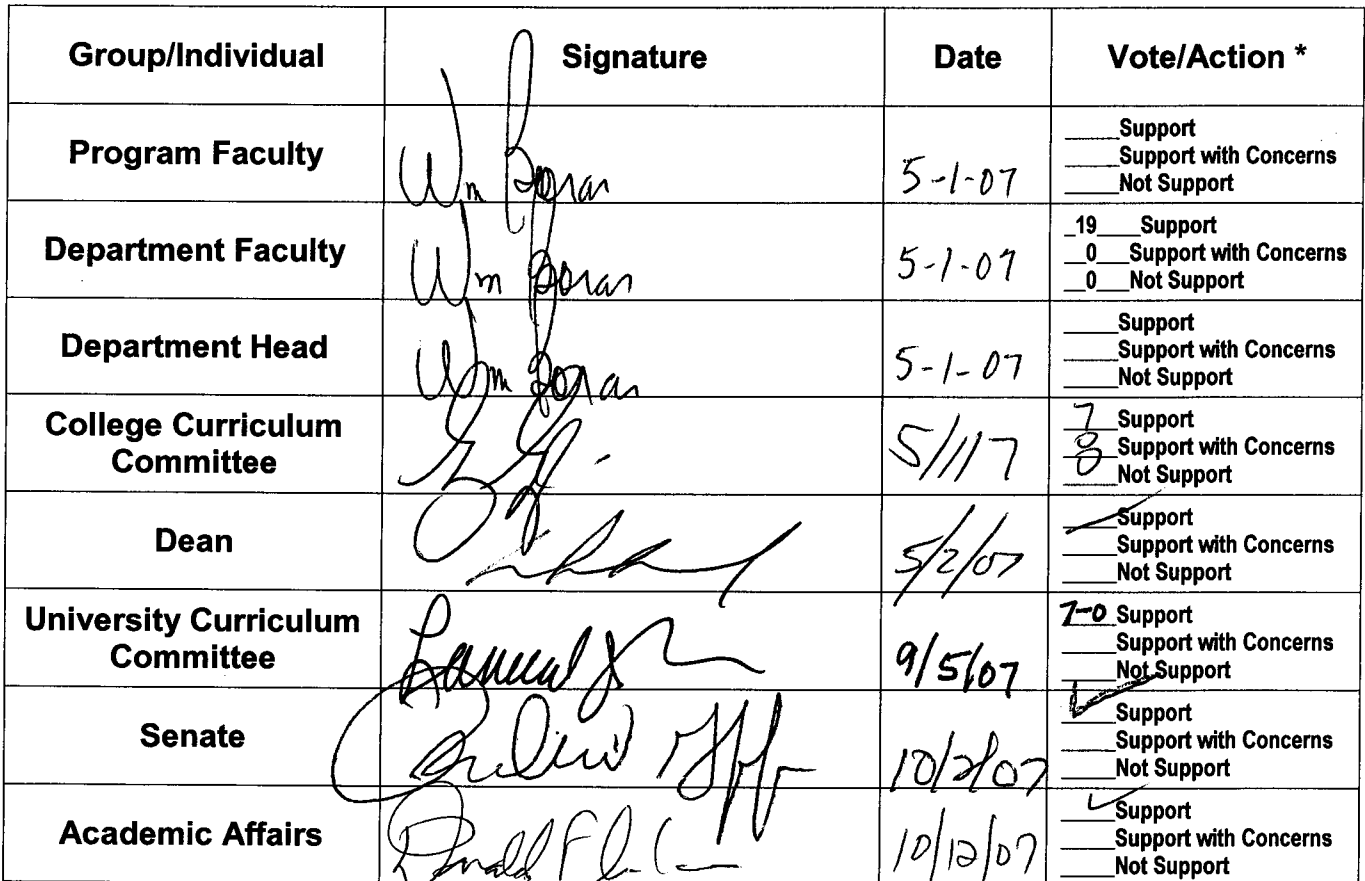 Group/Individual Signature Date Vote/Action *
Program Faculty Wm 5-1-07
____Support
____Support with Concerns
____Not Support
Department Faculty Wm 5-1-07
_19___Support
__0___Support with Concerns
__0___Not Support
Department Head Wm 5-1-07
____Support
____Support with Concerns
____Not Support
College Curriculum
Committee
7 Support
0 Support with Concerns
0 Not Support
Dean 5/2/07
____Support
____Support with Concerns
____Not Support
University Curriculum
Committee 9/5/07
7-0 Support
____Support with Concerns
____Not Support
Senate 10/2/07
____Support
____Support with Concerns
____Not Support
Academic Affairs Donald F 10/12/07
____Support
____Support with Concerns
____Not Support